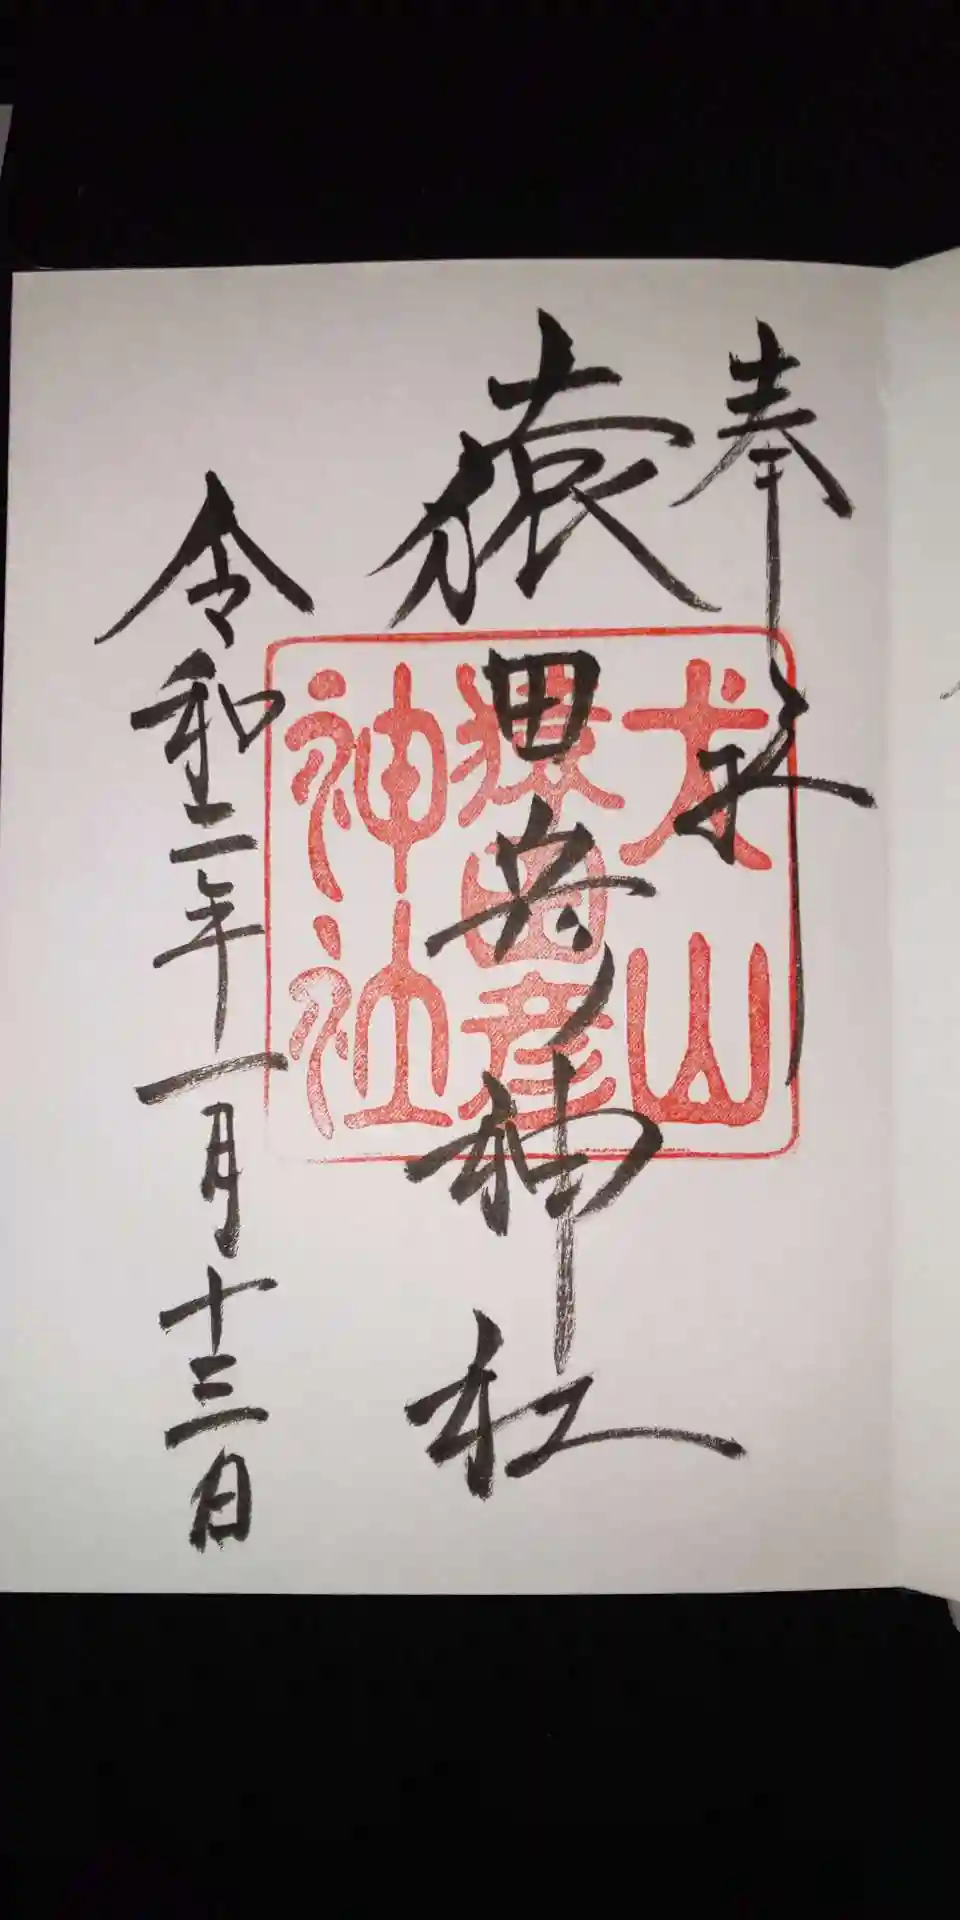 奉拝
猿田彦神社
令和二年一月十三日
犬山
猿田彦
神社